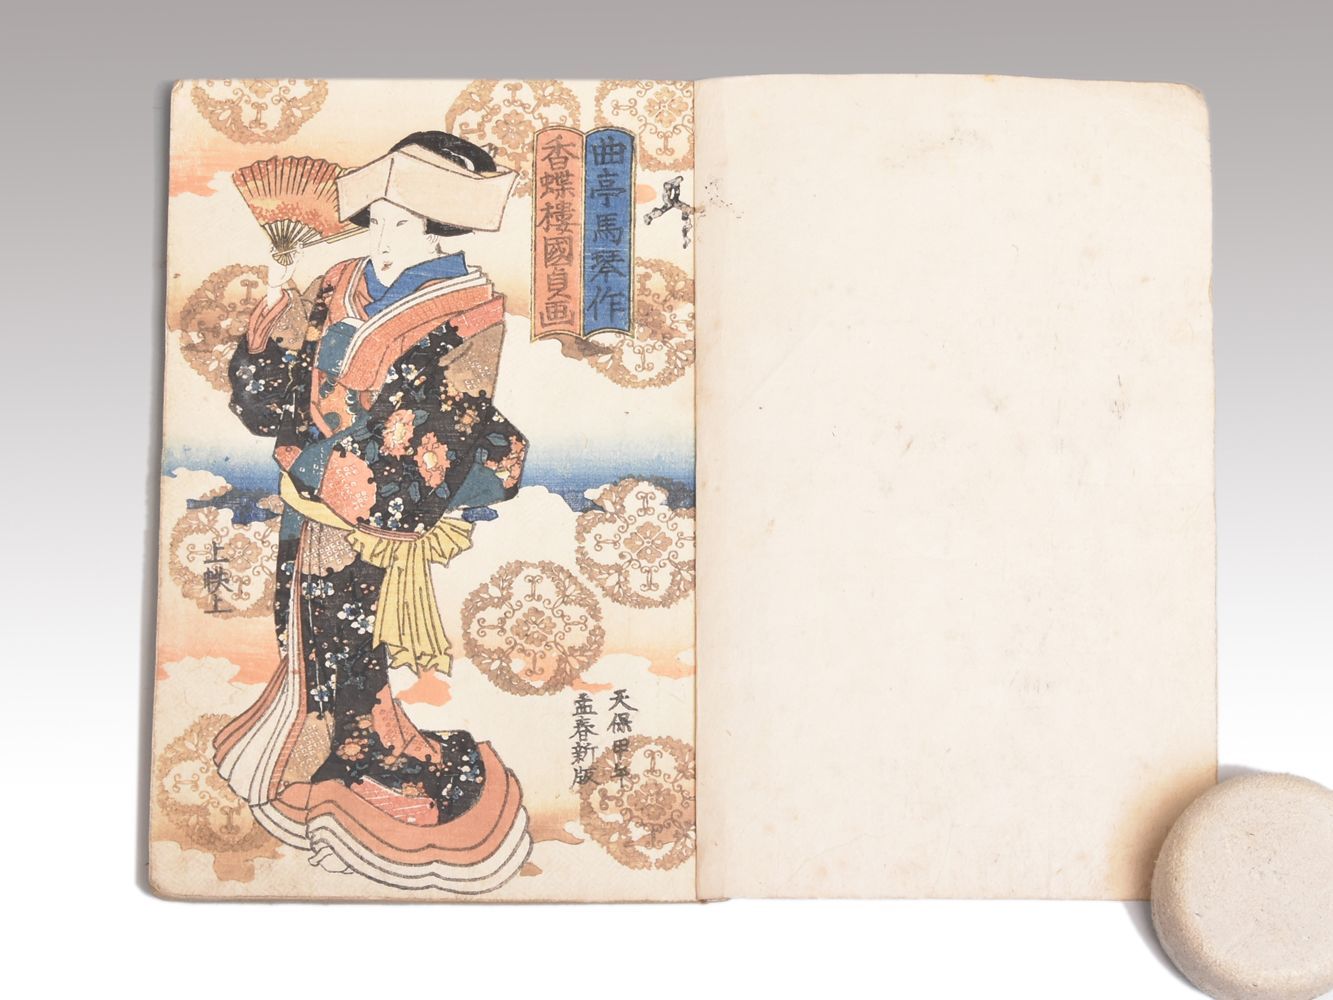 曲亭馬琴作
香蝶樓國貞画
天保甲午
孟春新版
上帙上